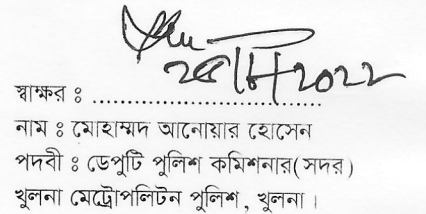 স্বাক্ষর ঃ ....................................
নাম ঃ মোহাম্মদ আনোয়ার হোসেন
পদবী ঃ ডেপুটি পুলিশ কমিশনার(সদর)
খুলনা মেট্রোপলিটন পুলিশ, খুলনা।